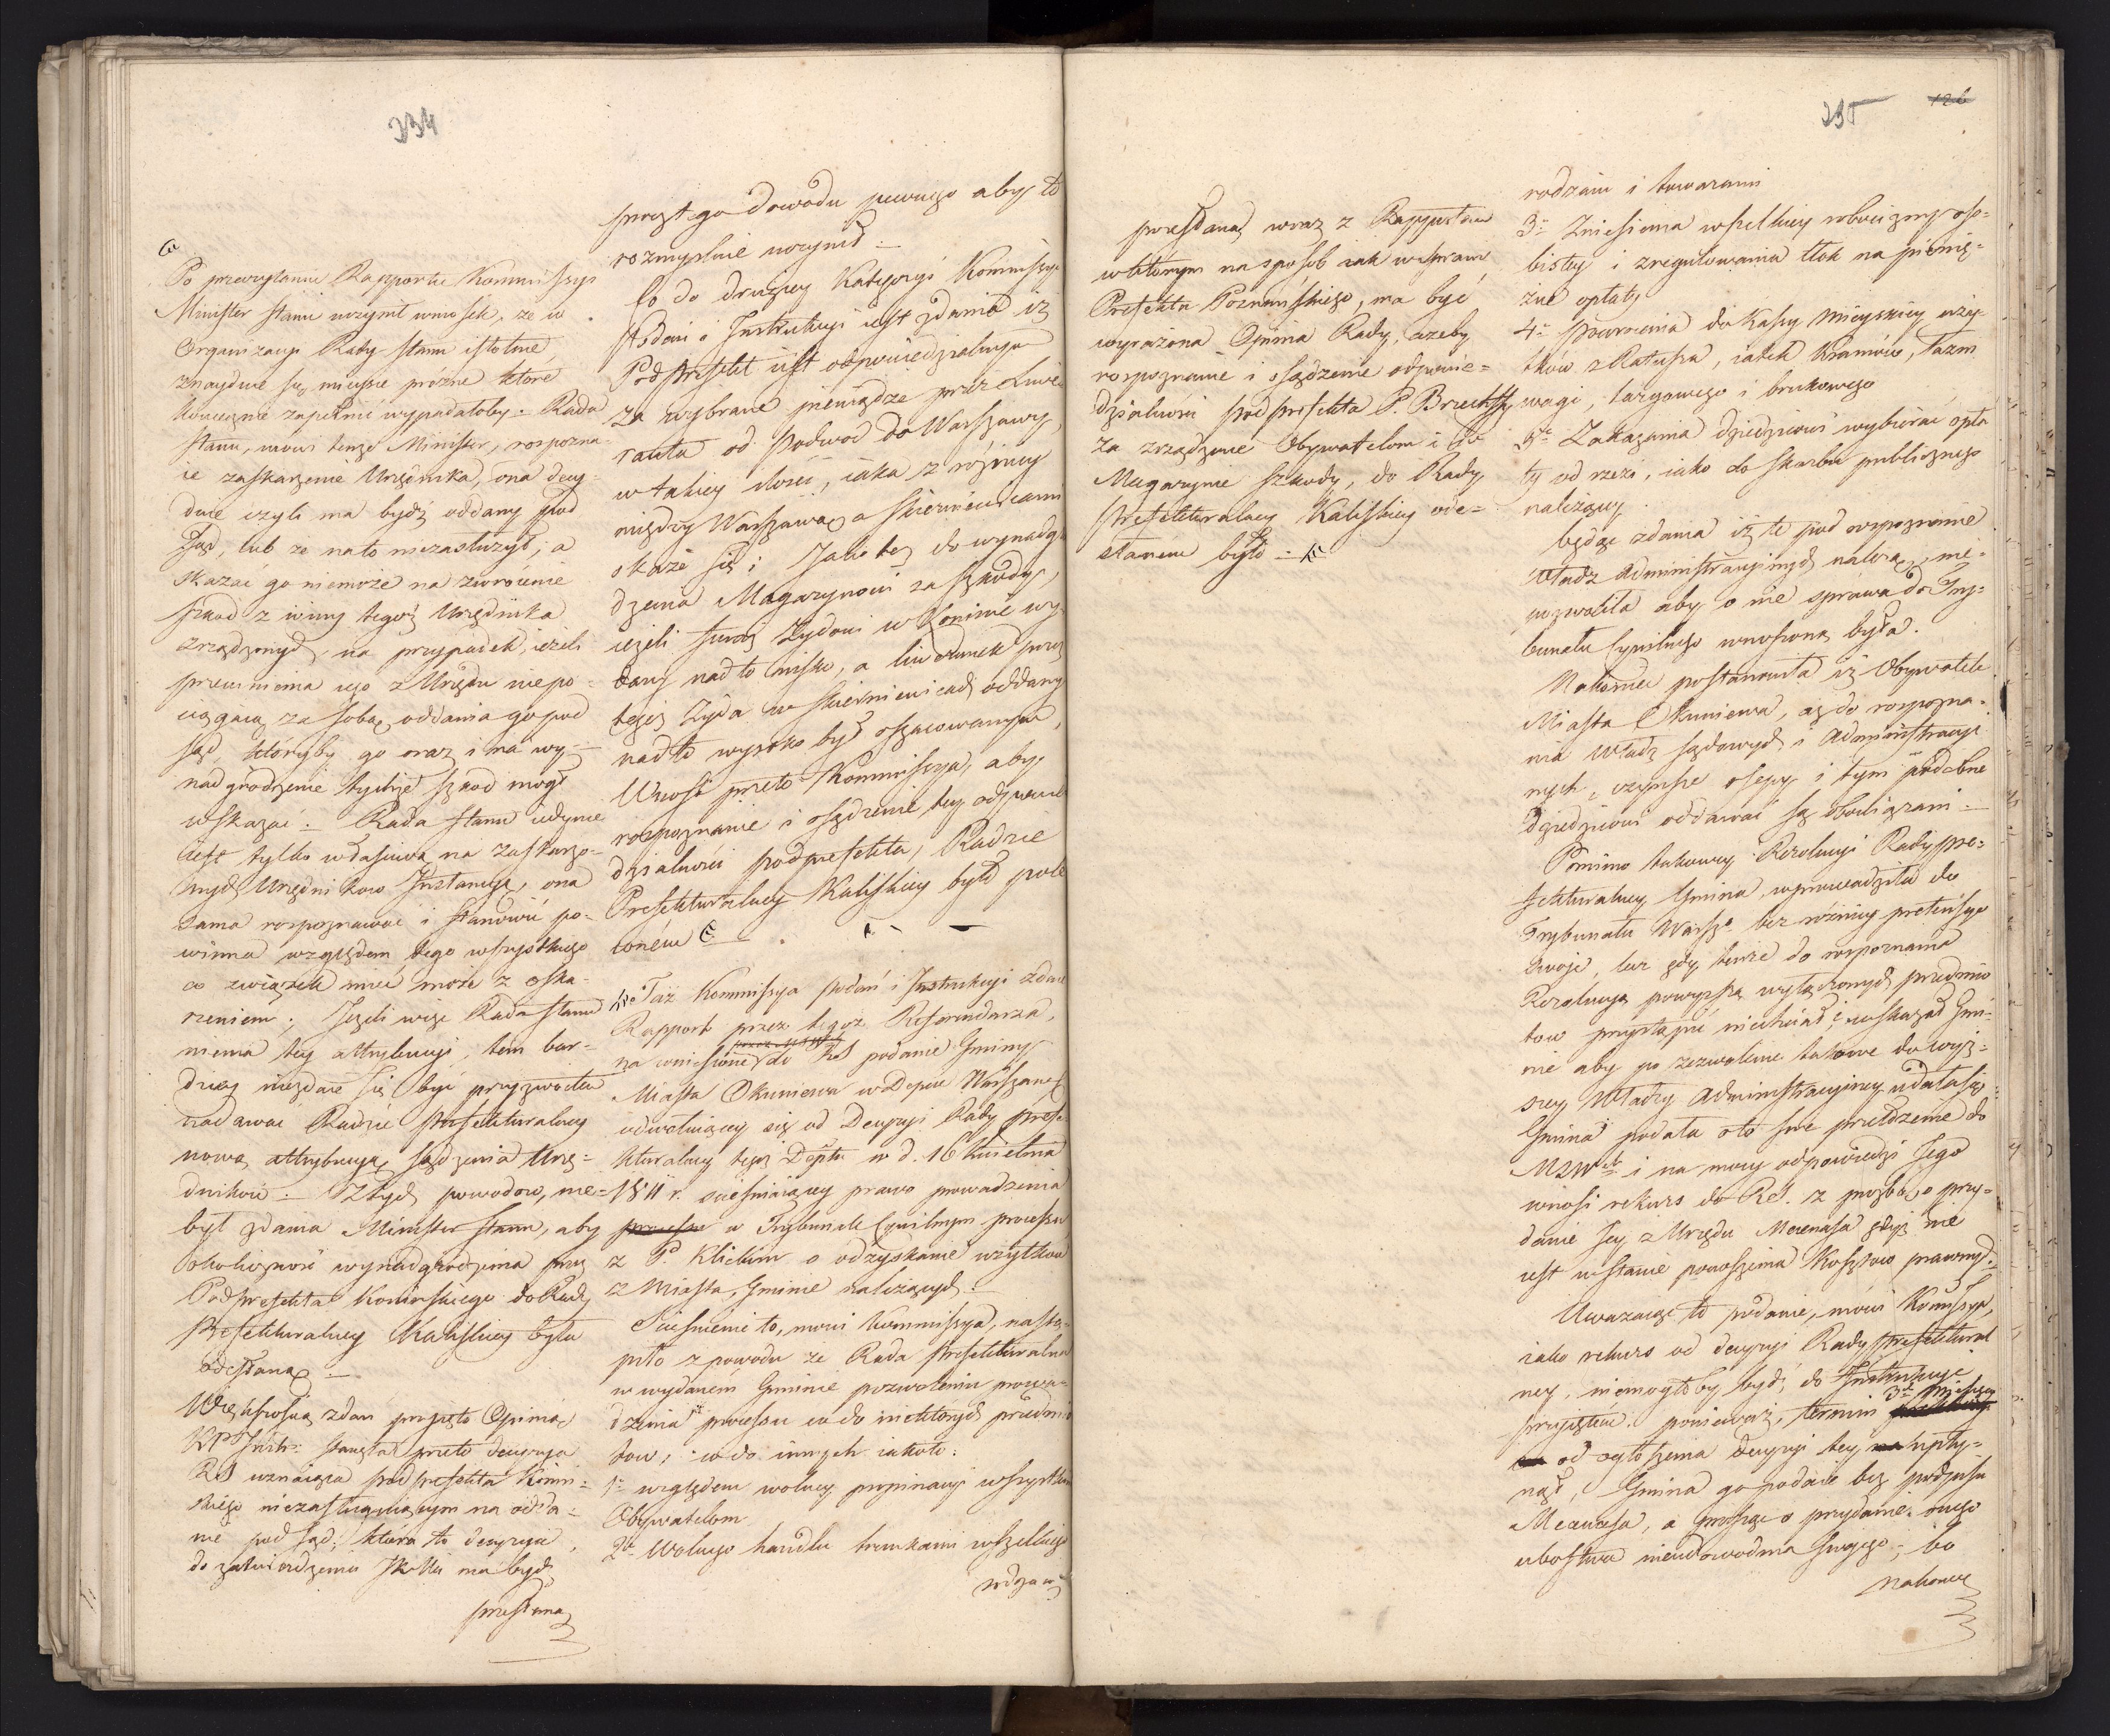 334
a
Po przeczytaniu Rapportu Kommissyi
Minister Stanu uczynił wniosek, że w
Organizacyi Rady Stanu istotnie
znayduie się mieysce próżne które
koniecznie zapełnić wypadałoby. Rada
Stanu, mówi tenże Minister, rozpozna-
ie zaskarżenie Urzędnika, ona decy-
duie czyli ma bydź oddany pod
Sąd, lub że na to niezasłużył; a
skazać go niemoże na zwrócenie
szkod z winy tegoż Urzędnika
zrządzonych, na przypadek, ieżeli
przewinienia iego z Urzędu niepo-
ciągaią za sobą oddania go pod
sąd, któryby go oraz i na wy-
nadgrodzenie tychże szkod mógł
wskazać. Rada Stanu iedynie
iest tylko właściwą na zaskarżo-
nych Urzędnikow Instancyą, ona
sama rozpoznawać i stanowić po-
winna względem tego wszystkiego
co związek mieć może z oska-
rzeniem; Jeżeli więc Rada Stanu
niema tey attrybucyi, tem bar-
dziey niezdaie się być przyzwoitem
nadawać Radzie Prefekturalney
nową attrybucyą sądzenia Urzę-
dników. Z tych powodow, nie-
był zdania Minister Stanu, aby
okoliczność wynadgrodzenia przez
Podprefekta Konińskiego do Rady
Prefekturalney Kaliskiey była
odesłana.
Większością zdań przyięto Opinią
KPJnstr: stanęła przeto decyzya
RS uznaiąca podprefekta Koniń-
skiego niezasługuiącym na odda-
nie pod sąd; która to decyzya
do zatwierdzenia JKMci ma bydź
przesłana
przytego dowodu pewnego aby to
rozmyślnie uczynił.
Co do drugiey Kategoryi Kommissya
Podań i Instrukcyi iest zdania iż
Podprefekt iest odpowiedzialnym
za wybrane pieniądze przez Liwe-
ranta od podwod do Warszawy,
w takiey ilości, iaka z różnicy
między Warszawą a Skierniewicami
okaże się; Jako też do wynadgro-
dzenia Magazynowi za szkody,
ieżeli furaż Żydowi w Koninie wy-
dany nadto nisko, a liwerunek przez
tegoż Żyda w Skierniewicach oddany
nadto wysoko był oszacowanym,
Wnosi przeto Kommissya, aby
rozpoznanie i osądzenie tey odpowie-
dzialności podprefekta, Radzie
Prefekturalney Kaliskiey było pole-
conem
Taż Kommissya podań i Instrukcyi zdaie
Rapport przez tegoż Referendarza,
na wniesione do RS podanie Gminy
Miasta Okuniewa w Depcie Warszaws.
odwołuiącey się od Decyzyi Rady Prefe-
kturalney tegoż Deptu w d. 16 Kwietnia
1811 r. scieśniaiącey prawo prowadzenia
w Trybunale Cywilnym processu
z P. Klickim o odzyskanie użytkow
z Miasta, Gminie należących.
Scieśnienie to, mowi Kommissya, nastą-
piło z powodu że Rada Prefekturalna
w wydanem Gminie pozwoleniu prowa-
dzenia processu co do niektorych przedmio-
tow, co do innych iakoto:
1o względem wolney propinacyi wszystkim
Obywatelom
2o Wolnego handlu trunkami wszelkiego
rodzaiu
335
126
przesłana, wraz z Rapportem
w którym na sposób iak w sprawie
Prefekta Poznańskiego, ma być
wyrażona Opinia Rady, ażeby
rozpoznanie i osądzenie odpowie-
dzialności podprefekta P.
za zrządzone Obywatelom i
Magazynie szkody, do Rady
Prefekturalney Kaliskiey ode-
słanem było
rodzaiu i towarami
3o Zniesienia wszelkiey robocizny oso-
bistey i zregulowania tłok na pienię-
żne opłaty
4o Powrocenia do Kassy Mieyskiey użyt-
ków z Ratusza, iatek kramów, łazni
wagi, targowego i brukowego
5o Zakazania dziedzicowi wybierać opła-
ty od rzezi, iako do skarbu publicznego
należącey.
będąc zdania iż te pod rozpoznanie
Władz Administracyinych należą, nie-
pozwoliła aby o nie sprawa do Try-
bunału Cywilnego wnoszona była.
Nakoniec postanowiła iż Obywatele
Miasta Okuniewa, aż do rozpozna-
nia Władz sądowych i Administracyi-
nych, czynsze osepy i tym podobne
dziedzicowi oddawać są obowiązani.
Pomimo takowey Rezolucyi Rady pre-
fekturalney Gmina, wprowadziła do
Trybunału Warszo bez różnicy pretensye
swoje, lecz gdy tenże do rozpoznania
Rezolucyą powyższą wyłączonych przedmio-
tow przystąpić niechciał, i wskazał Gmi-
nie aby po zezwolenie takowe do wyż-
szey Władzy Administracyiney udała się,
Gmina podała o to swe przełożenie do
MSW i na mocy odpowiedzi Jego
wnosi rekurs do RS. z prozbą o przy-
danie Jey z Urzędu Mecenasa gdyż nie
iest w stanie ponoszenia Kosztow prawnych.
Uważaiąc to podanie, mówi Kommissya,
iako rekurs od decyzyi Rady prefektural-
ney, niemogłoby bydź do Instrukcyi
przyiętem. ponieważ, termin 3ch miesięcy
od ogłoszenia decyzyi tey upły-
nął, Gmina go podaie bez podpisu
Mecenasa, a prosząc o przydanie onego
ubostwa nieudowodnia swoiego; bo
nakoniec